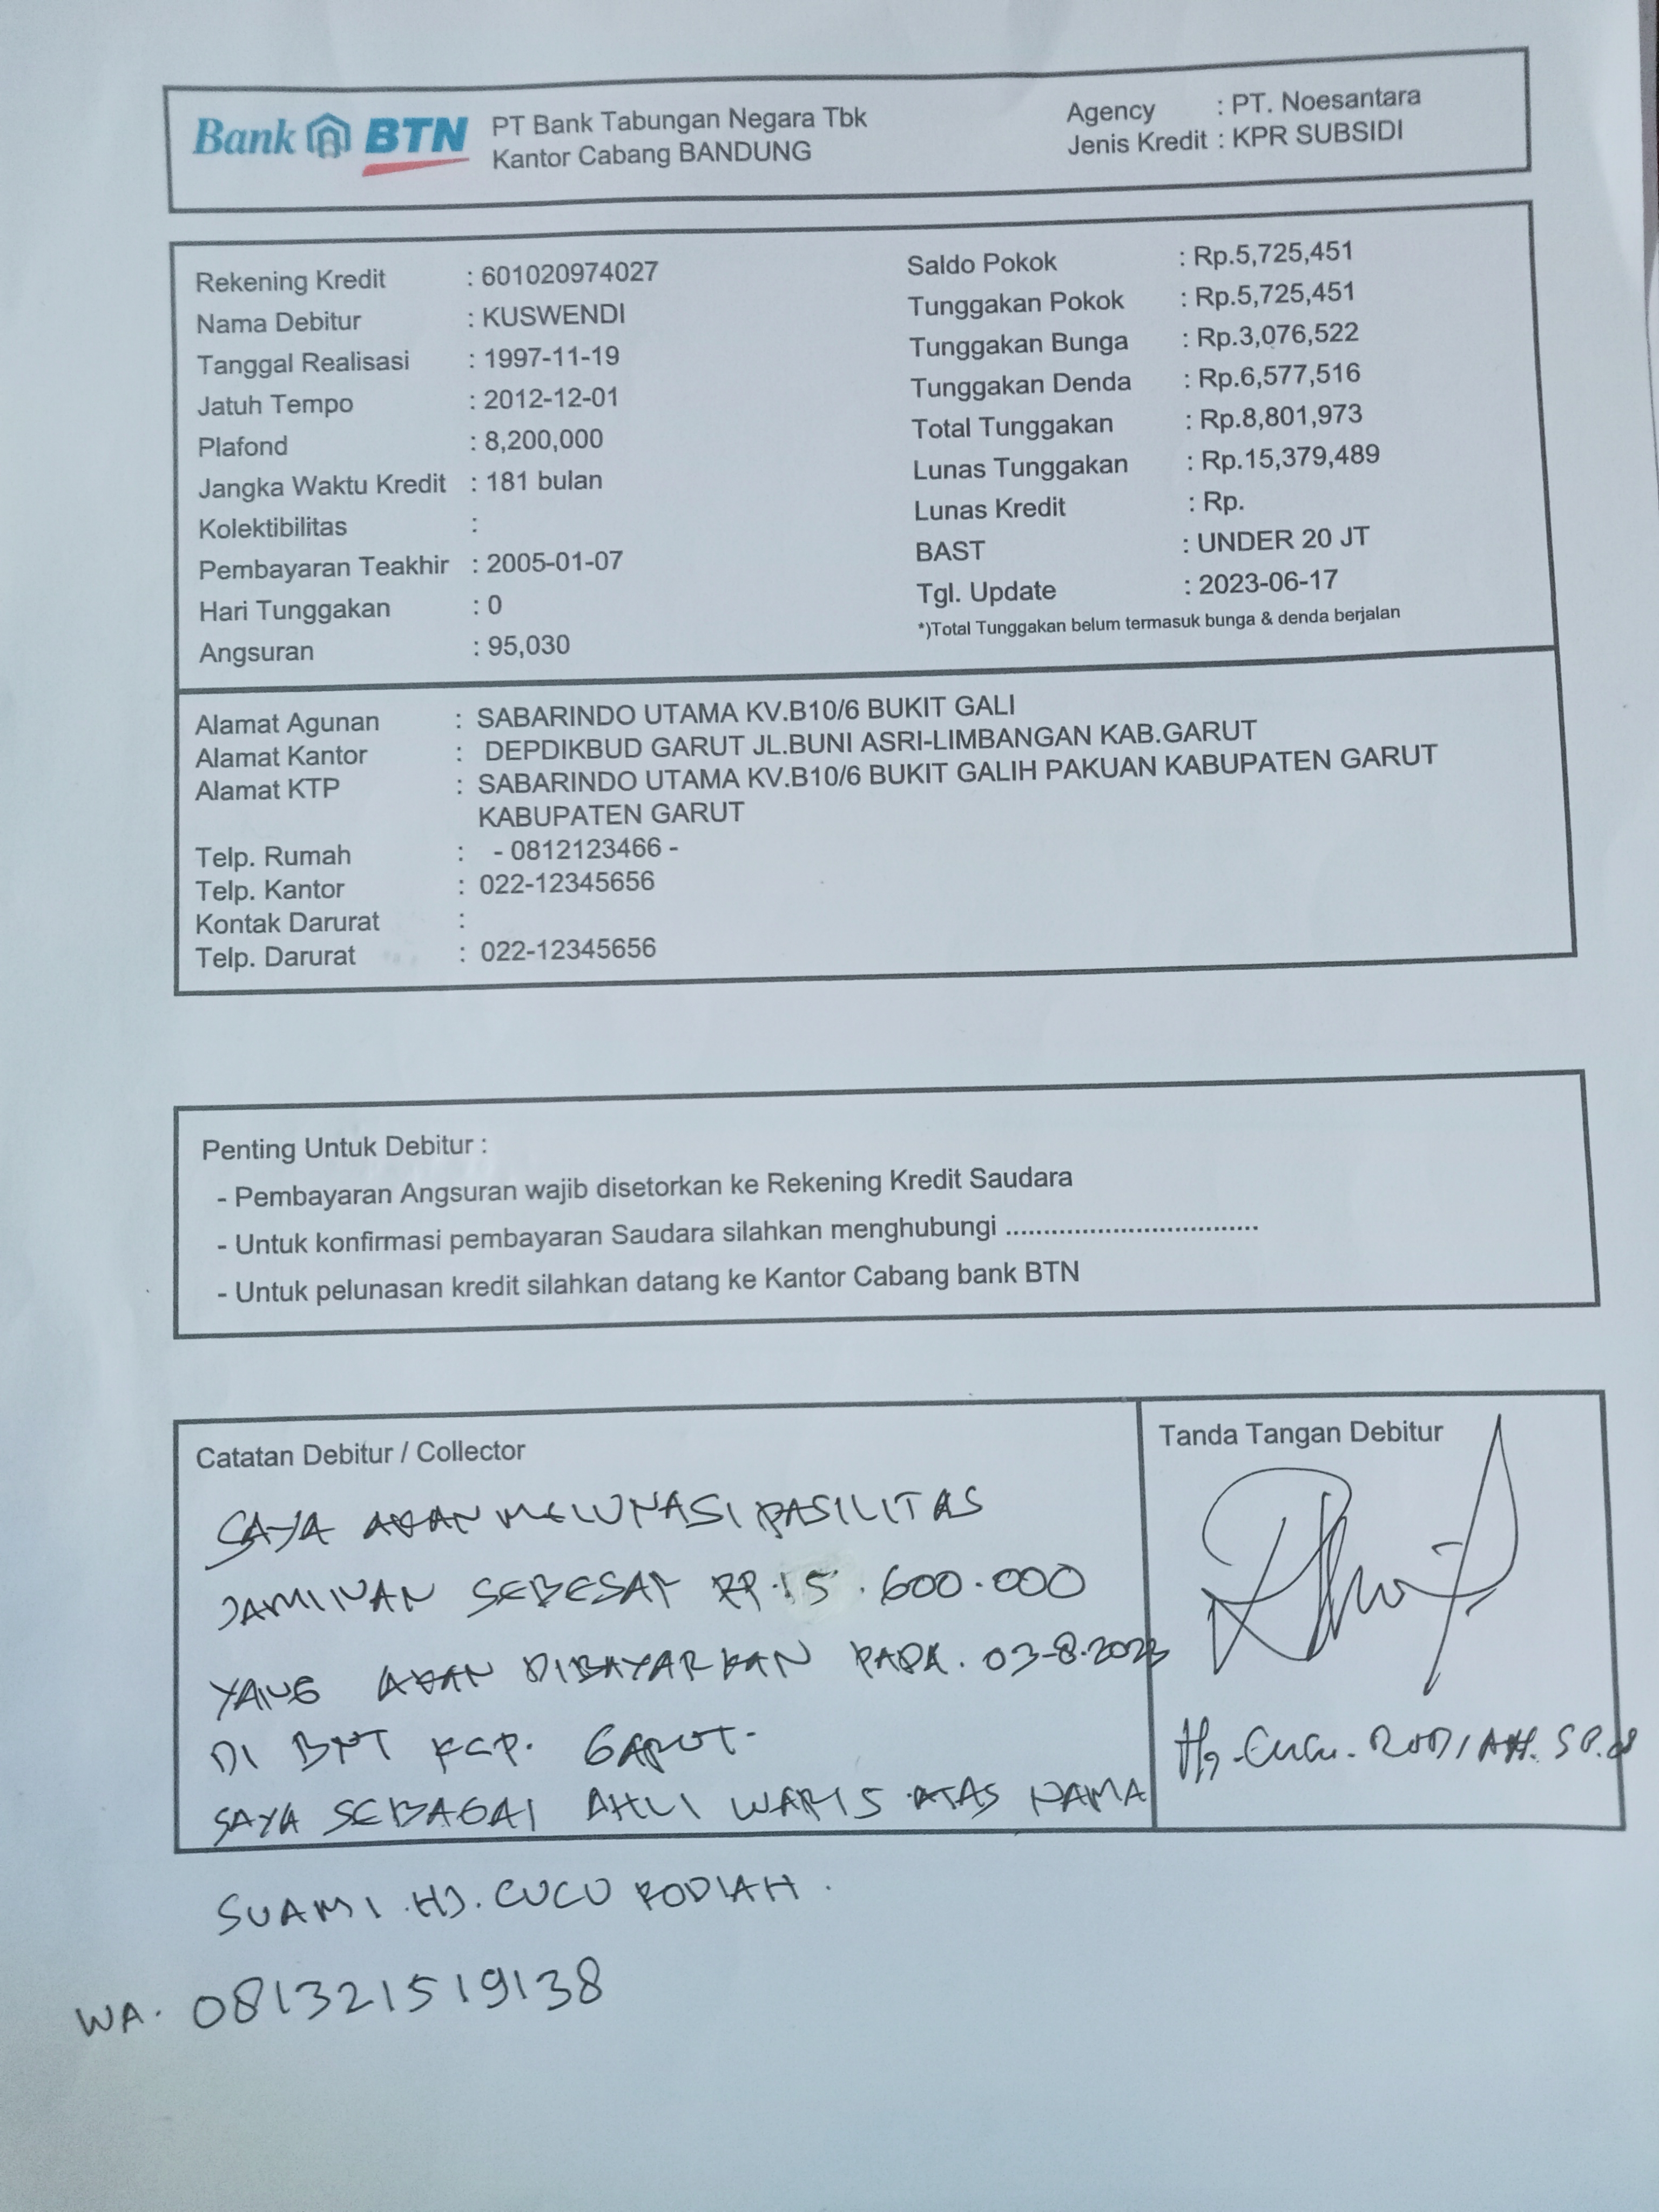 Bank BTN
PT Bank Tabungan Negara Tbk
Kantor Cabang BANDUNG
Agency : PT. Noesantara
Jenis Kredit : KPR SUBSIDI
Rekening Kredit : 601020974027
Nama Debitur : KUSWENDI
Tanggal Realisasi : 1997-11-19
Jatuh Tempo : 2012-12-01
Plafond : 8,200,000
Jangka Waktu Kredit : 181 bulan
Kolektibilitas :
Pembayaran Teakhir : 2005-01-07
Hari Tunggakan : 0
Angsuran : 95,030
Saldo Pokok : Rp.5,725,451
Tunggakan Pokok : Rp.5,725,451
Tunggakan Bunga : Rp.3,076,522
Tunggakan Denda : Rp.6,577,516
Total Tunggakan : Rp.8,801,973
Lunas Tunggakan : Rp.15,379,489
Lunas Kredit : Rp.
BAST : UNDER 20 JT
Tgl. Update : 2023-06-17
*)Total Tunggakan belum termasuk bunga & denda berjalan
Alamat Agunan : SABARINDO UTAMA KV.B10/6 BUKIT GALI
Alamat Kantor : DEPDIKBUD GARUT JL.BUNI ASRI-LIMBANGAN KAB.GARUT
Alamat KTP : SABARINDO UTAMA KV.B10/6 BUKIT GALIH PAKUAN KABUPATEN GARUT
KABUPATEN GARUT
Telp. Rumah : - 0812123466 -
Telp. Kantor : 022-12345656
Kontak Darurat :
Telp. Darurat : 022-12345656
Penting Untuk Debitur :
- Pembayaran Angsuran wajib disetorkan ke Rekening Kredit Saudara
- Untuk konfirmasi pembayaran Saudara silahkan menghubungi ..................................
- Untuk pelunasan kredit silahkan datang ke Kantor Cabang bank BTN
Catatan Debitur / Collector
SAYA AKAN MELUNASI PASILITAS
JAMINAN SEBESAR RP.15.600.000
YANG AKAN DIBAYARKAN PADA. 03-8.2023
DI BNT KCP. GARUT.
SAYA SEBAGAI AHLI WARIS ATAS NAMA
SUAMI .HJ. CUCU RODIAH.
WA. 081321519138
Tanda Tangan Debitur
Hj. Cucu. RODIAH. SP.d